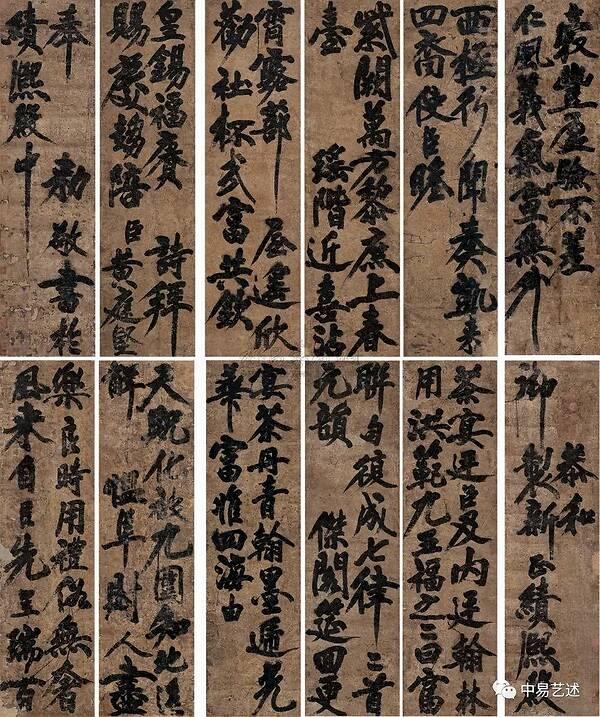 穀豐盈驗不差
仁風義氣亘無外
西極行聞奏凱來
四裔使臣瞻
紫闕萬方黎庶上春
臺 瑤階近喜沾
霄露蔀 屋遙欣
勸社杯式富共欽
皇錫福賡 詩拜
賜慶趨陪 臣黃庭堅
奉 敕敬書於
績熙殿中
恭和
御製新正績熙殿
茶宴廷臣及內廷翰林
用洪範九五福之二曰富
聯句復成七律二首
元韻 傑閣筵回更
宴茶丹青翰墨遞光
華富惟四海由
天貺化被九圜知此活
解慍阜財人盡
樂良時用禮俗無奢
風來自昔先呈瑞首
中易艺述